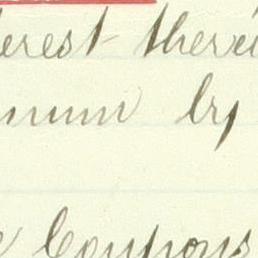 erest there
num by
Coupons